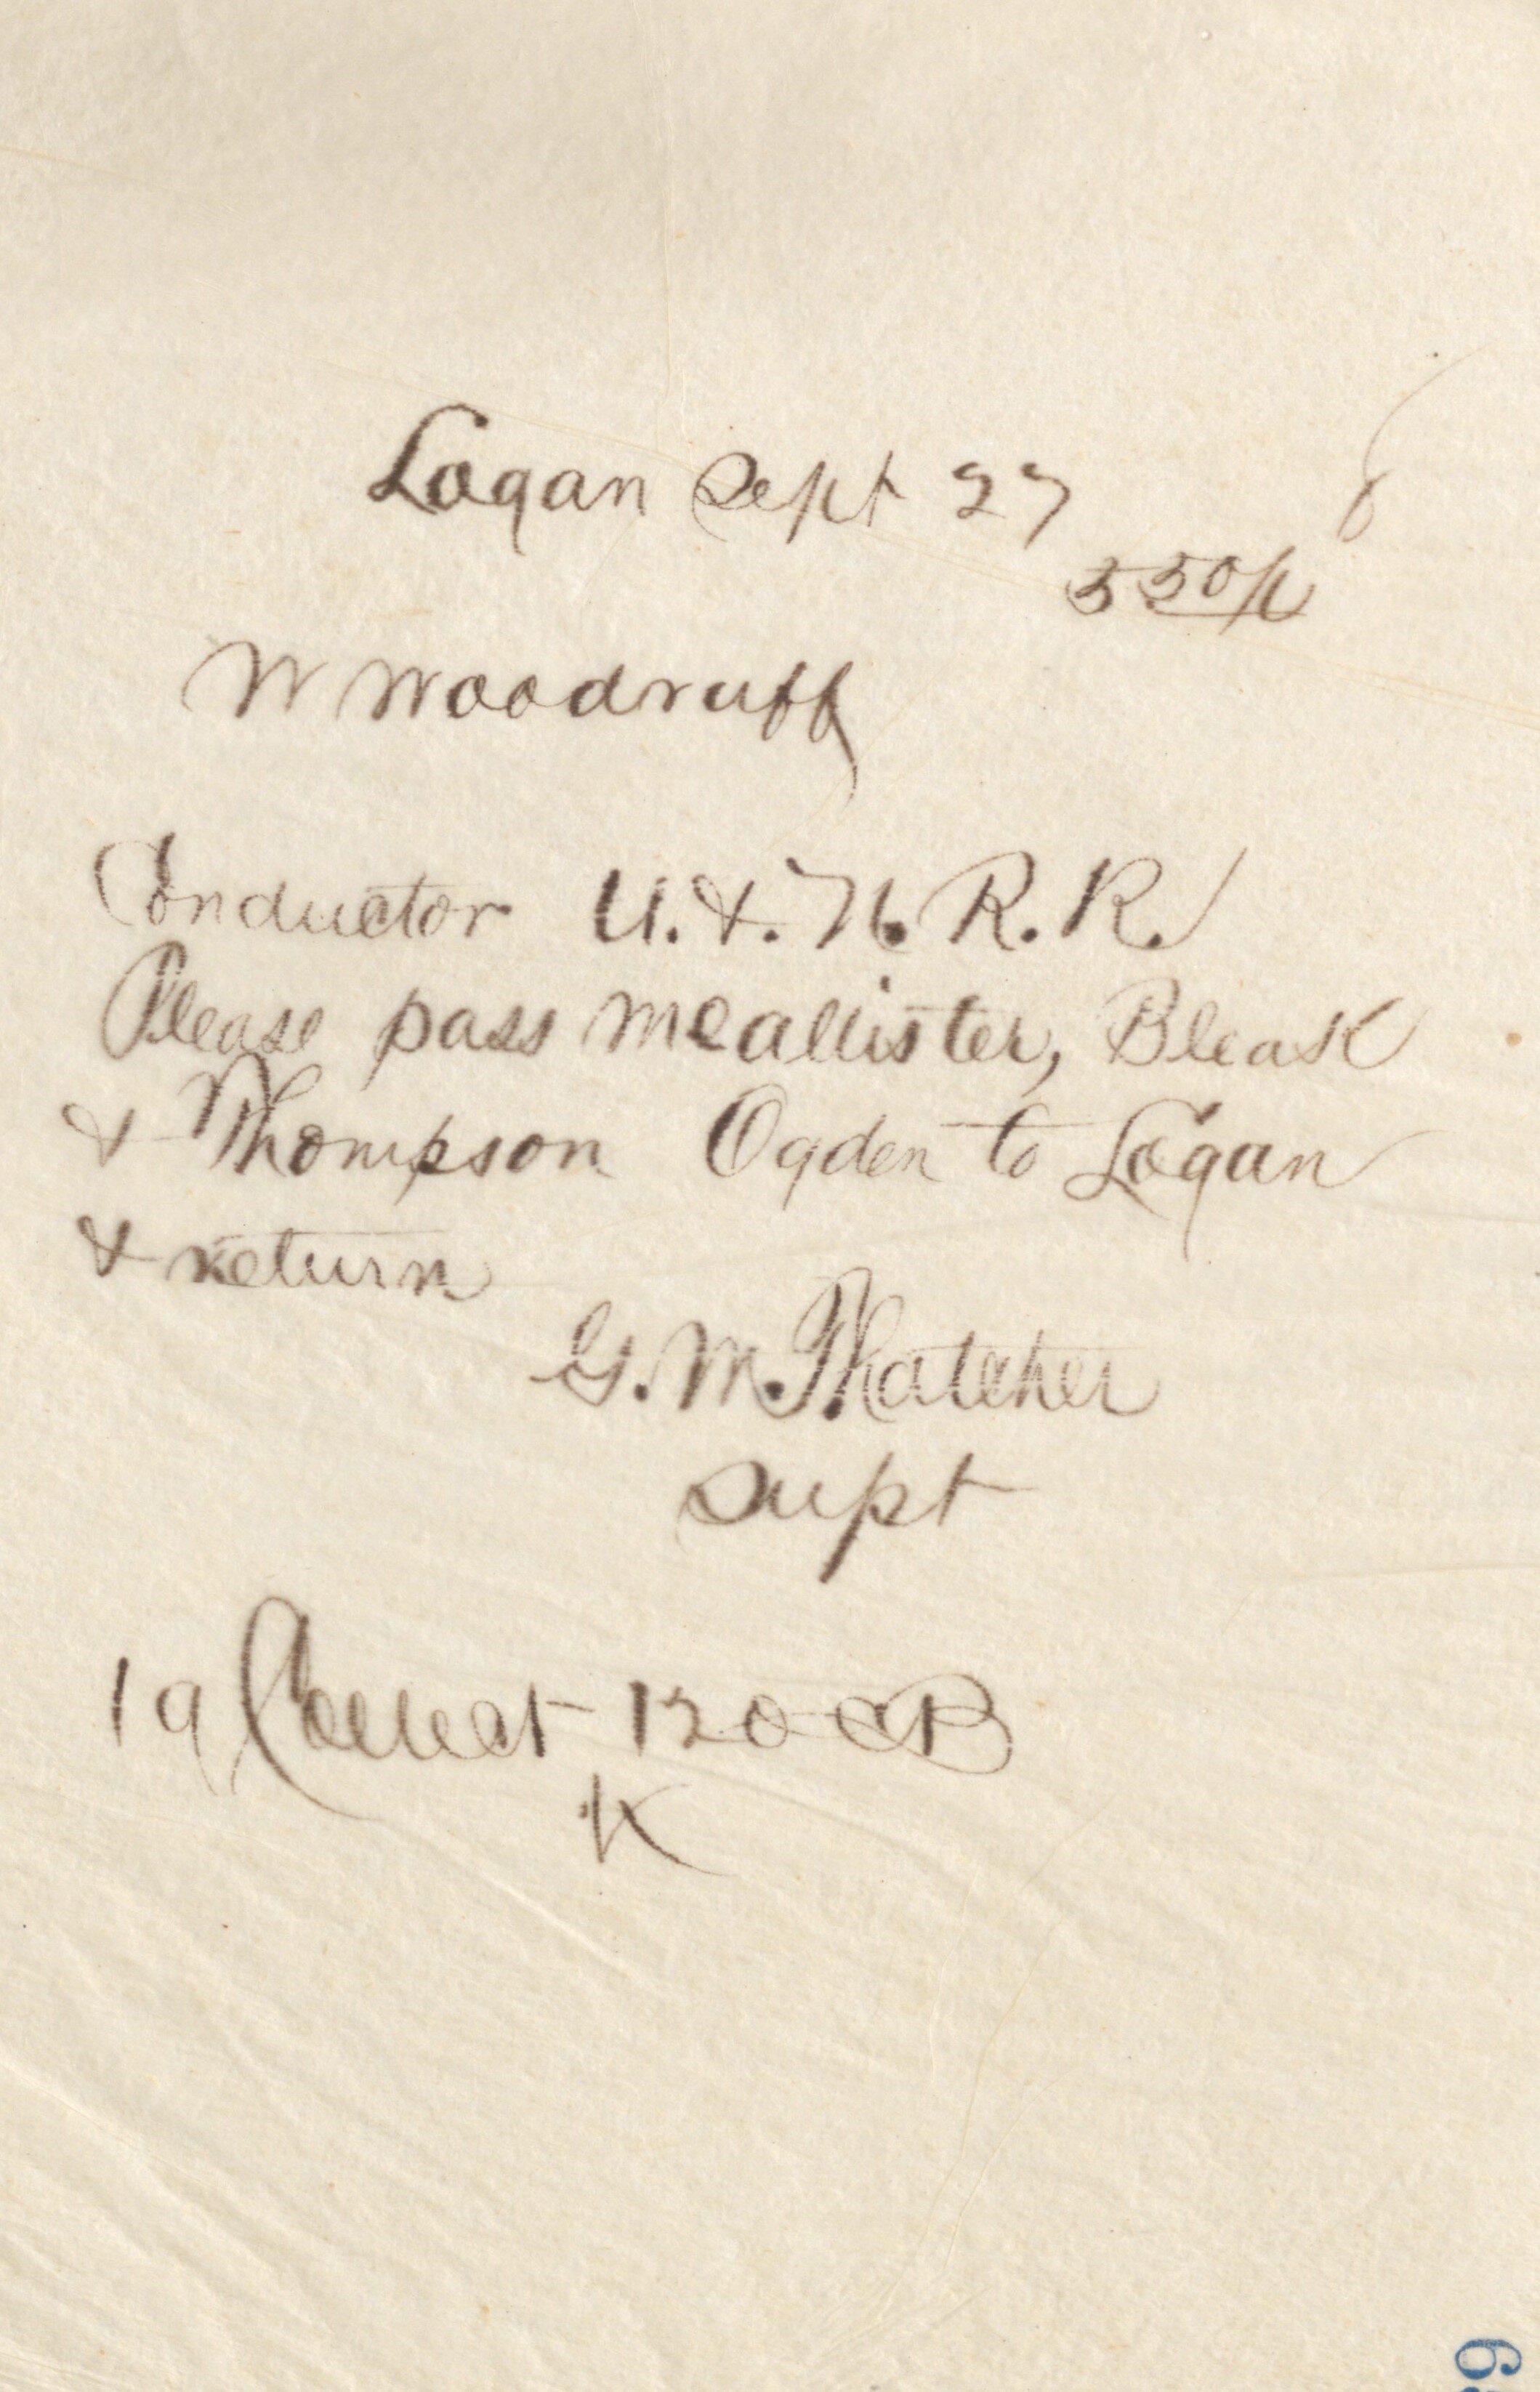 Logan Sept 27
5 50 p
W Woodruff
Conductor U. & N. R. R.
Please pass McAllister, Bleak
& Thompson Ogden to Logan
& return
G. M. Thatcher
Supt
19 Collect 120 CB
K